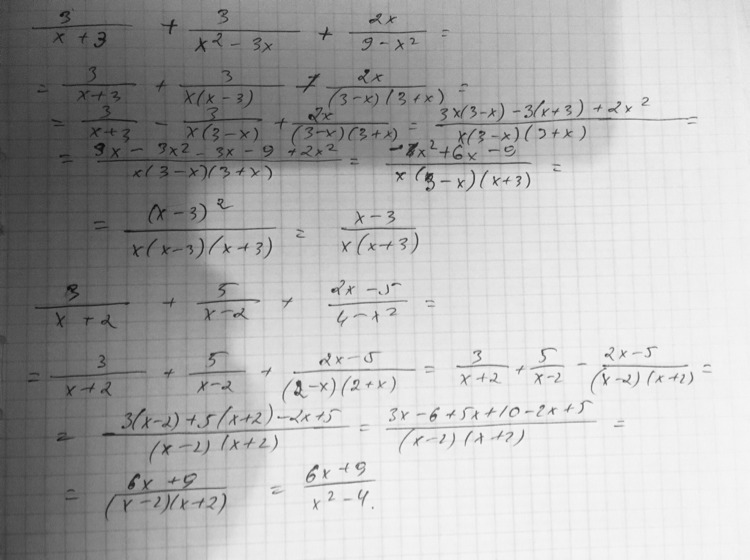 3/(x + 3) + 3/(x² - 3x) + 2x/(9 - x²) =
= 3/(x+3) + 3/(x(x-3)) + 2x/((3-x)(3+x)) =
= 3/(x+3) - 3/(x(3-x)) + 2x/((3-x)(3+x)) = (3x(3-x) - 3(x+3) + 2x²)/(x(3-x)(3+x)) =
= (9x - 3x² - 3x - 9 + 2x²)/(x(3-x)(3+x)) = (-x² + 6x - 9)/(x(3-x)(x+3)) =
= (x-3)²/(x(x-3)(x+3)) = (x-3)/(x(x+3))
3/(x + 2) + 5/(x-2) + (2x-5)/(4-x²) =
= 3/(x+2) + 5/(x-2) + (2x-5)/((2-x)(2+x)) = 3/(x+2) + 5/(x-2) - (2x-5)/((x-2)(x+2)) =
= (3(x-2) + 5(x+2) - 2x + 5)/((x-2)(x+2)) = (3x - 6 + 5x + 10 - 2x + 5)/((x-2)(x+2)) =
= (6x + 9)/((x-2)(x+2)) = (6x + 9)/(x² - 4).